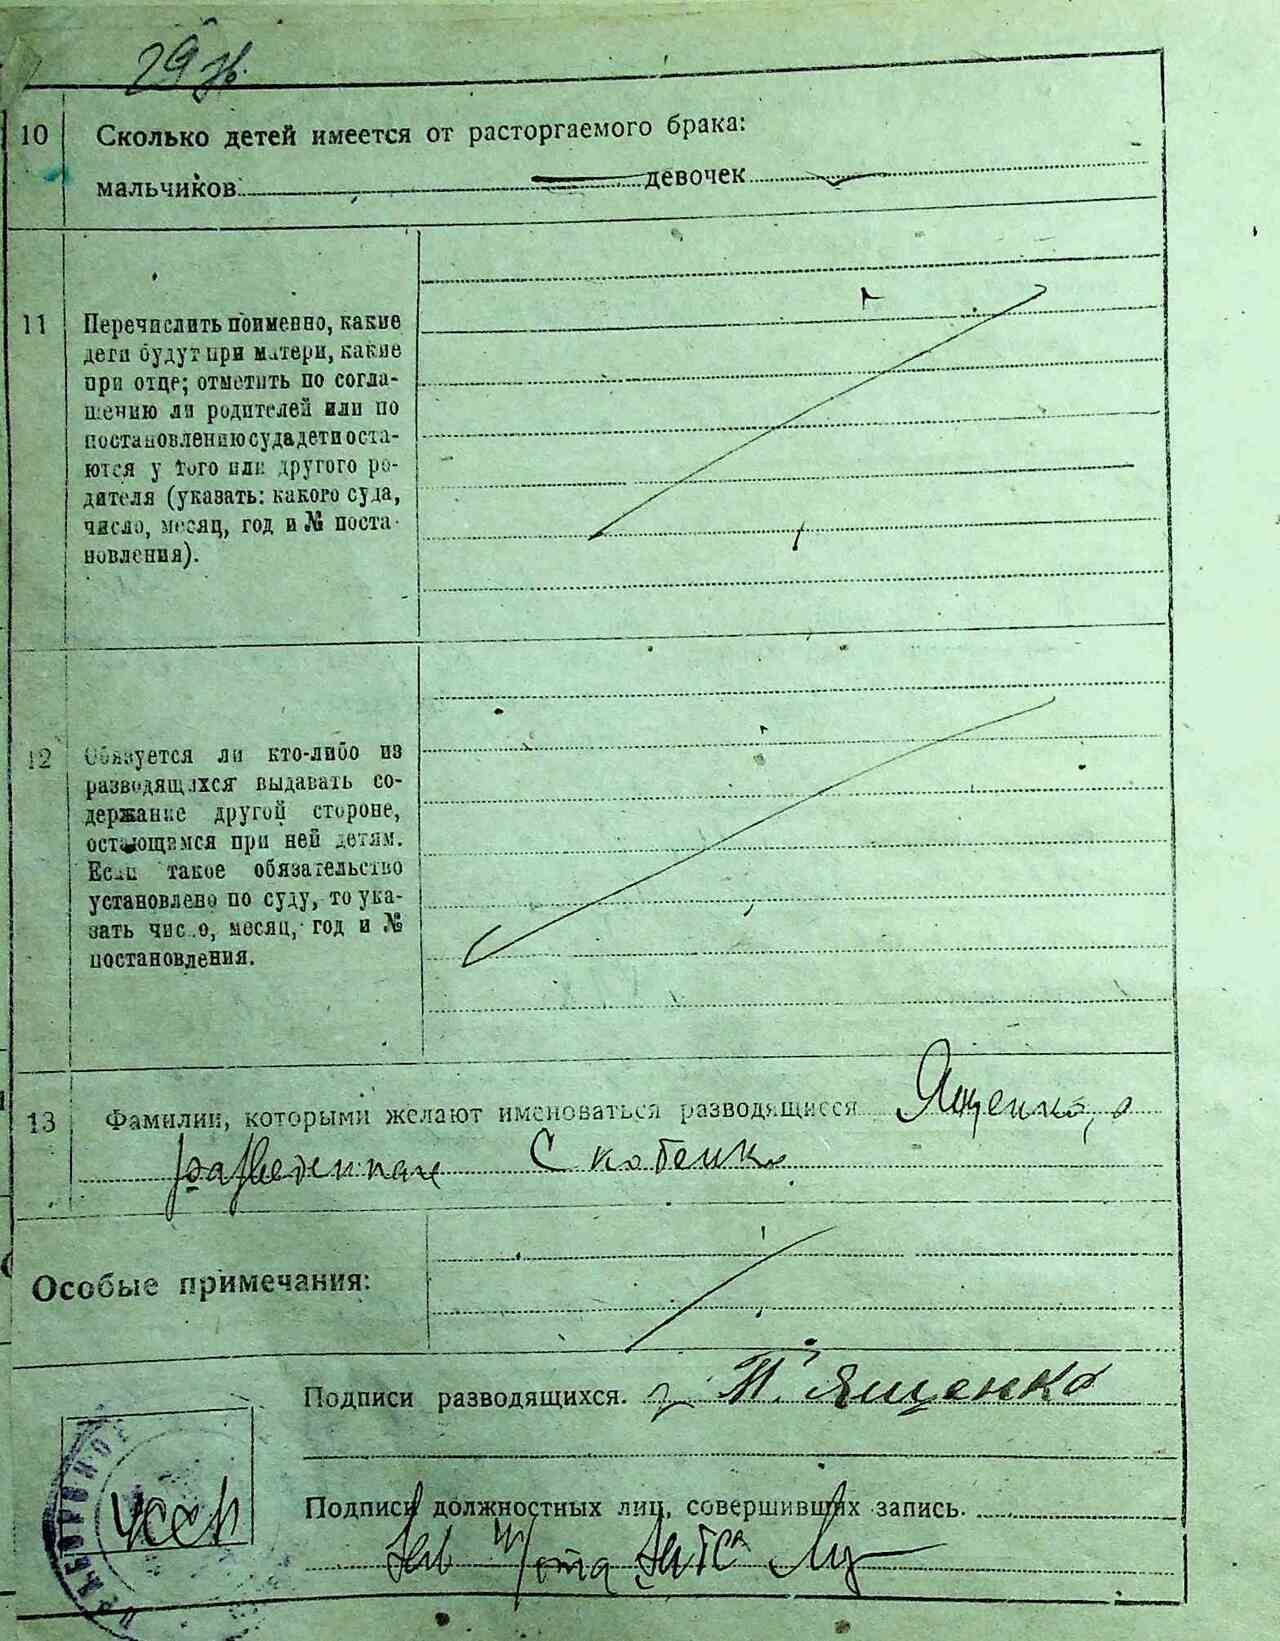 29
10 Сколько детей имеется от расторгаемого брака:
мальчиков девочек
11 Перечислить поименно, какие
дети будут при матери, какие
при отце; отметить по согла-
шению ли родителей или по
постановлению суда дети оста-
ются у того или другого ро-
дителя (указать: какого суда,
число, месяц, год и № поста-
новления).
12 Обязуется ли кто-либо из
разводящихся выдавать со-
держание другой стороне,
остающимся при ней детям.
Если такое обязательство
установлено по суду, то ука-
зать число, месяц, год и №
постановления.
13 Фамилии, которыми желают именоваться разводящиеся Ященко, а
разведенная Скотенко
Особые примечания:
Подписи разводящихся. И. Ященко
Подписи должностных лиц, совершивших запись.
Зав